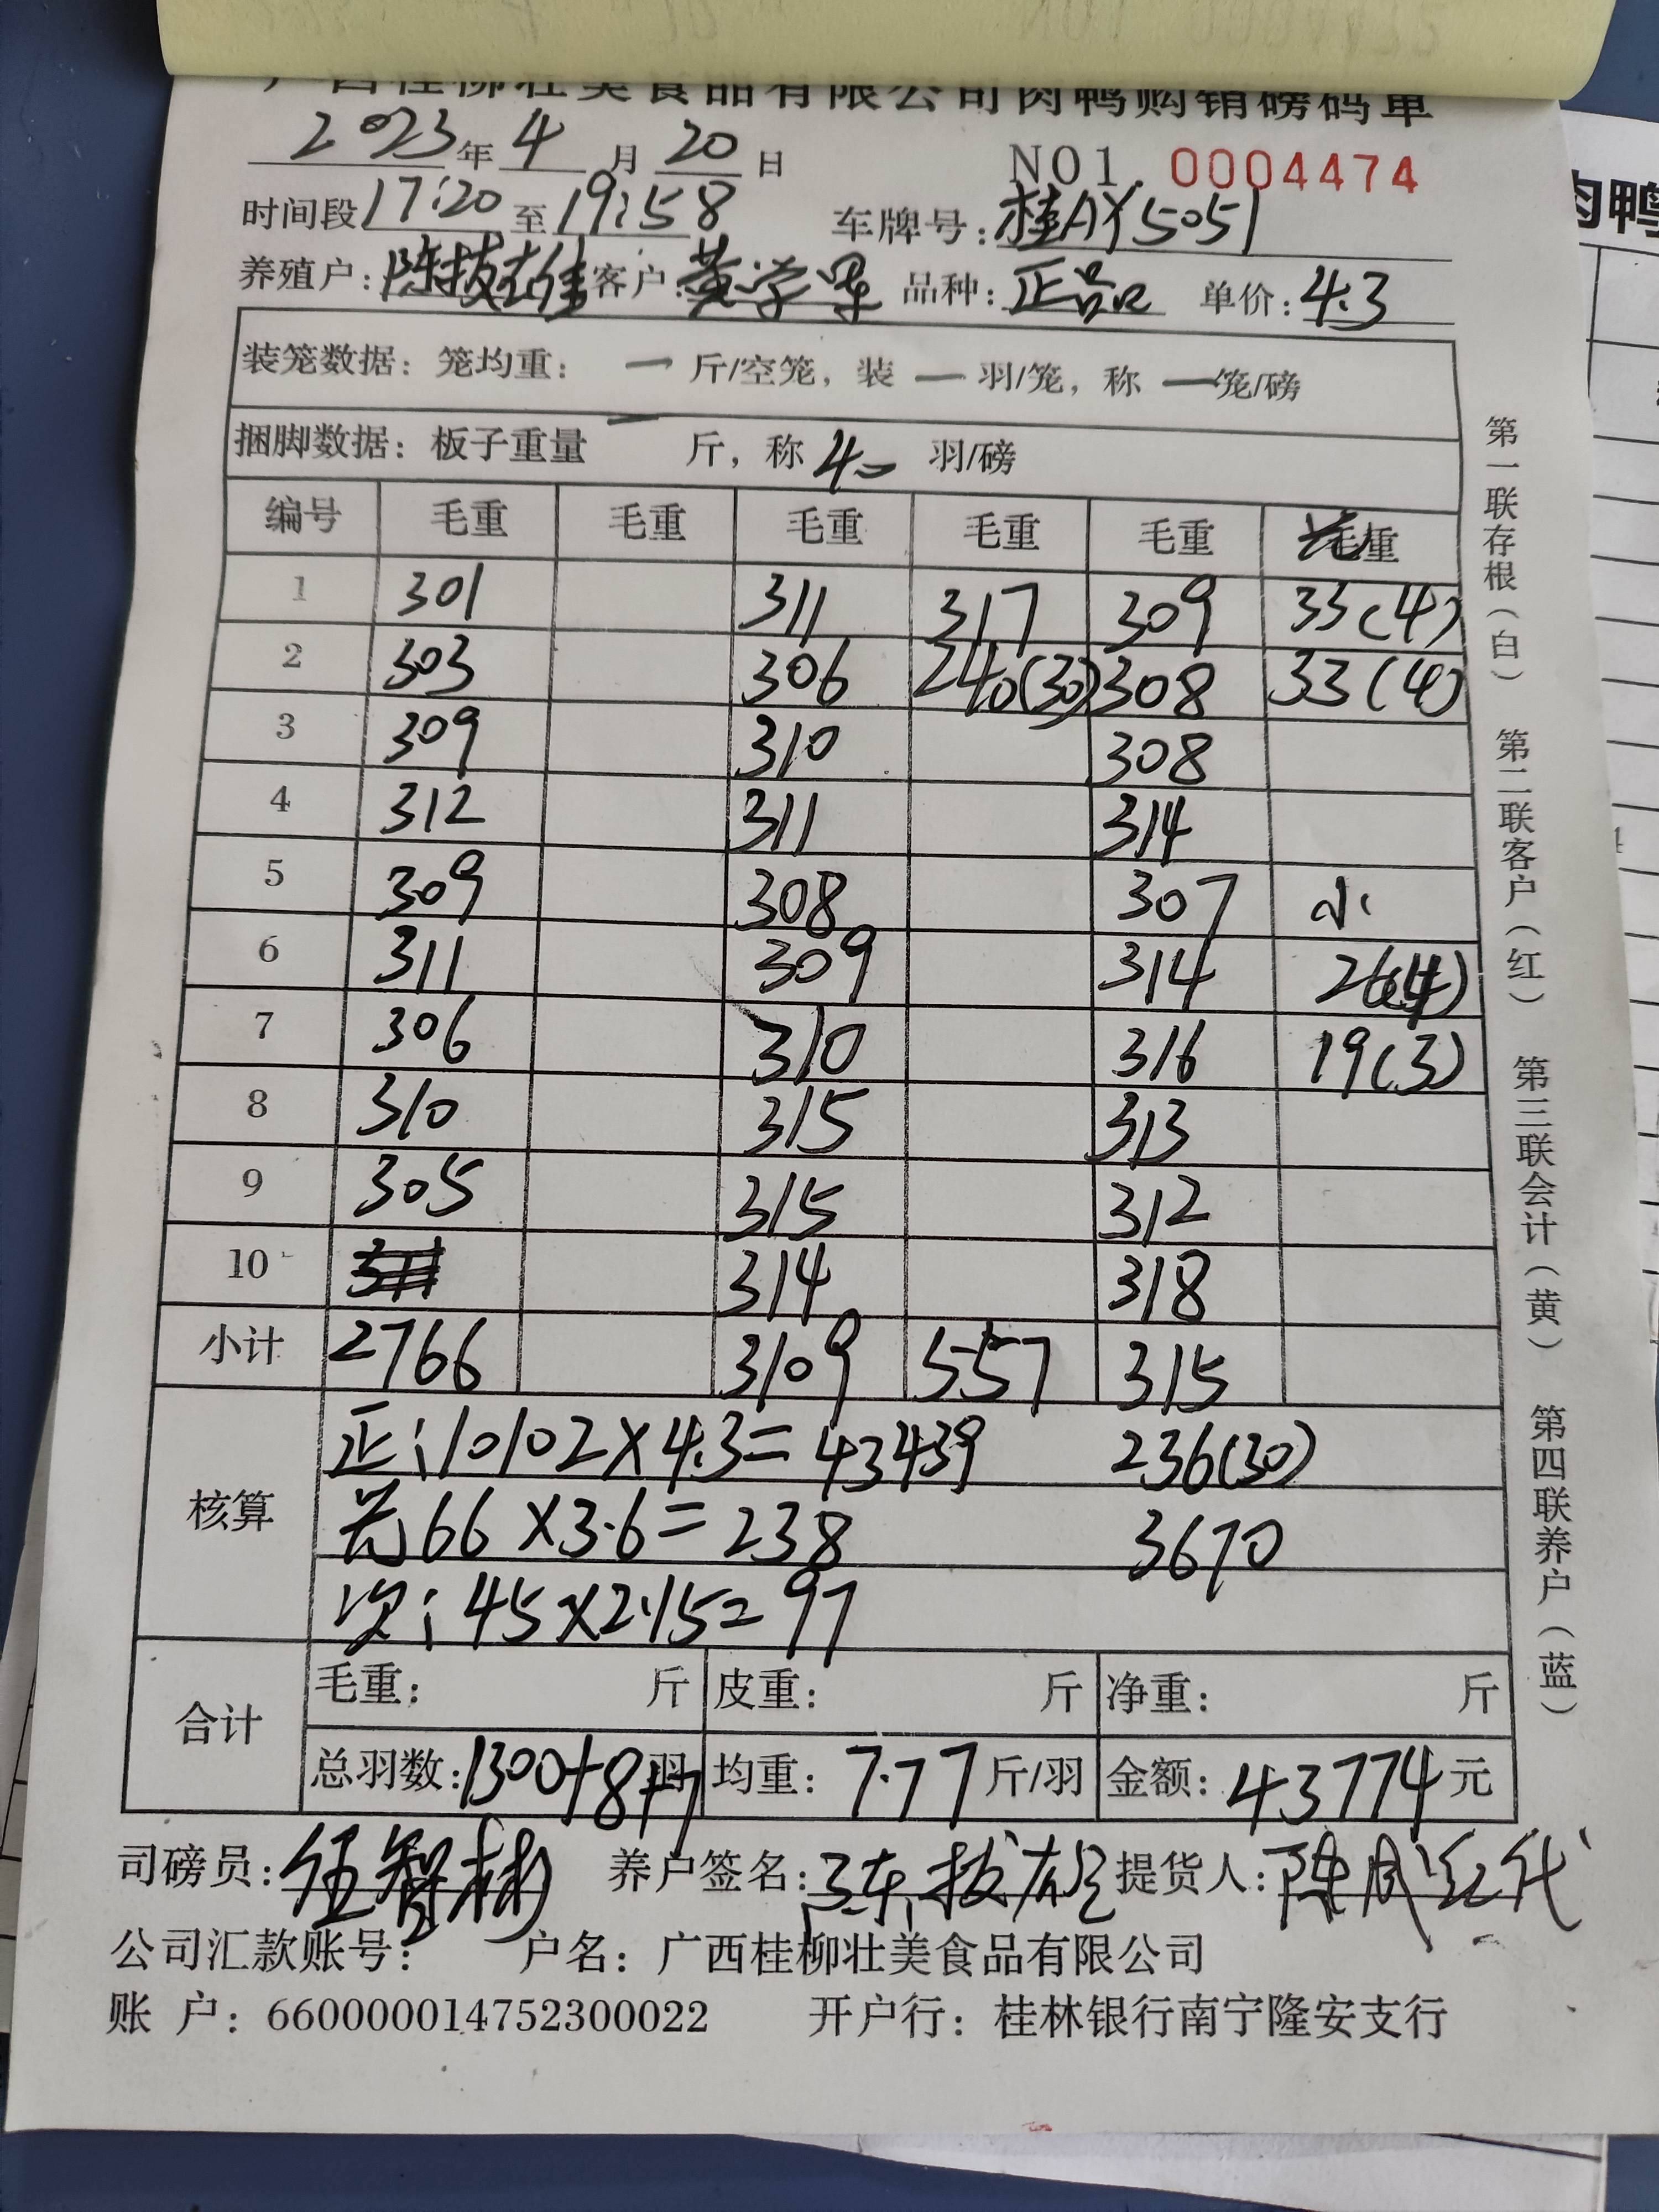 广西桂柳壮美食品有限公司肉鸭购销磅码单
2023年4月20日 NO1 0004474
时间段17:20至19:58 车牌号:桂AY5051
养殖户:陈拔雄 客户:黄学军 品种:正品 单价:4.3
装笼数据:笼均重: 一 斤/空笼,装 一 羽/笼,称 一 笼/磅
捆脚数据:板子重量 一 斤,称 40 羽/磅
编号 毛重 毛重 毛重 毛重 毛重 毛重
1 301 311 317 309 33(4)
2 303 306 240(30) 308 33(4)
3 309 310 308
4 312 311 314
5 309 308 307 小
6 311 309 314 26(4)
7 306 310 316 19(3)
8 310 315 313
9 305 315 312
10 314 318
小计 2766 3109 557 315
核算 正:10102×4.3=43439 236(30)
66×3.6=238 3670
次:45×2.15=97
合计 毛重: 斤 皮重: 斤 净重: 斤
总羽数:1300+8+7羽 均重:7.77斤/羽 金额:43774元
司磅员:伍智彬 养户签名:陈拔雄 提货人:陈凤红代
公司汇款账号: 户名:广西桂柳壮美食品有限公司
账 户:660000014752300022 开户行:桂林银行南宁隆安支行
第一联存根(白) 第二联客户(红) 第三联会计(黄) 第四联养户(蓝)
肉鸭